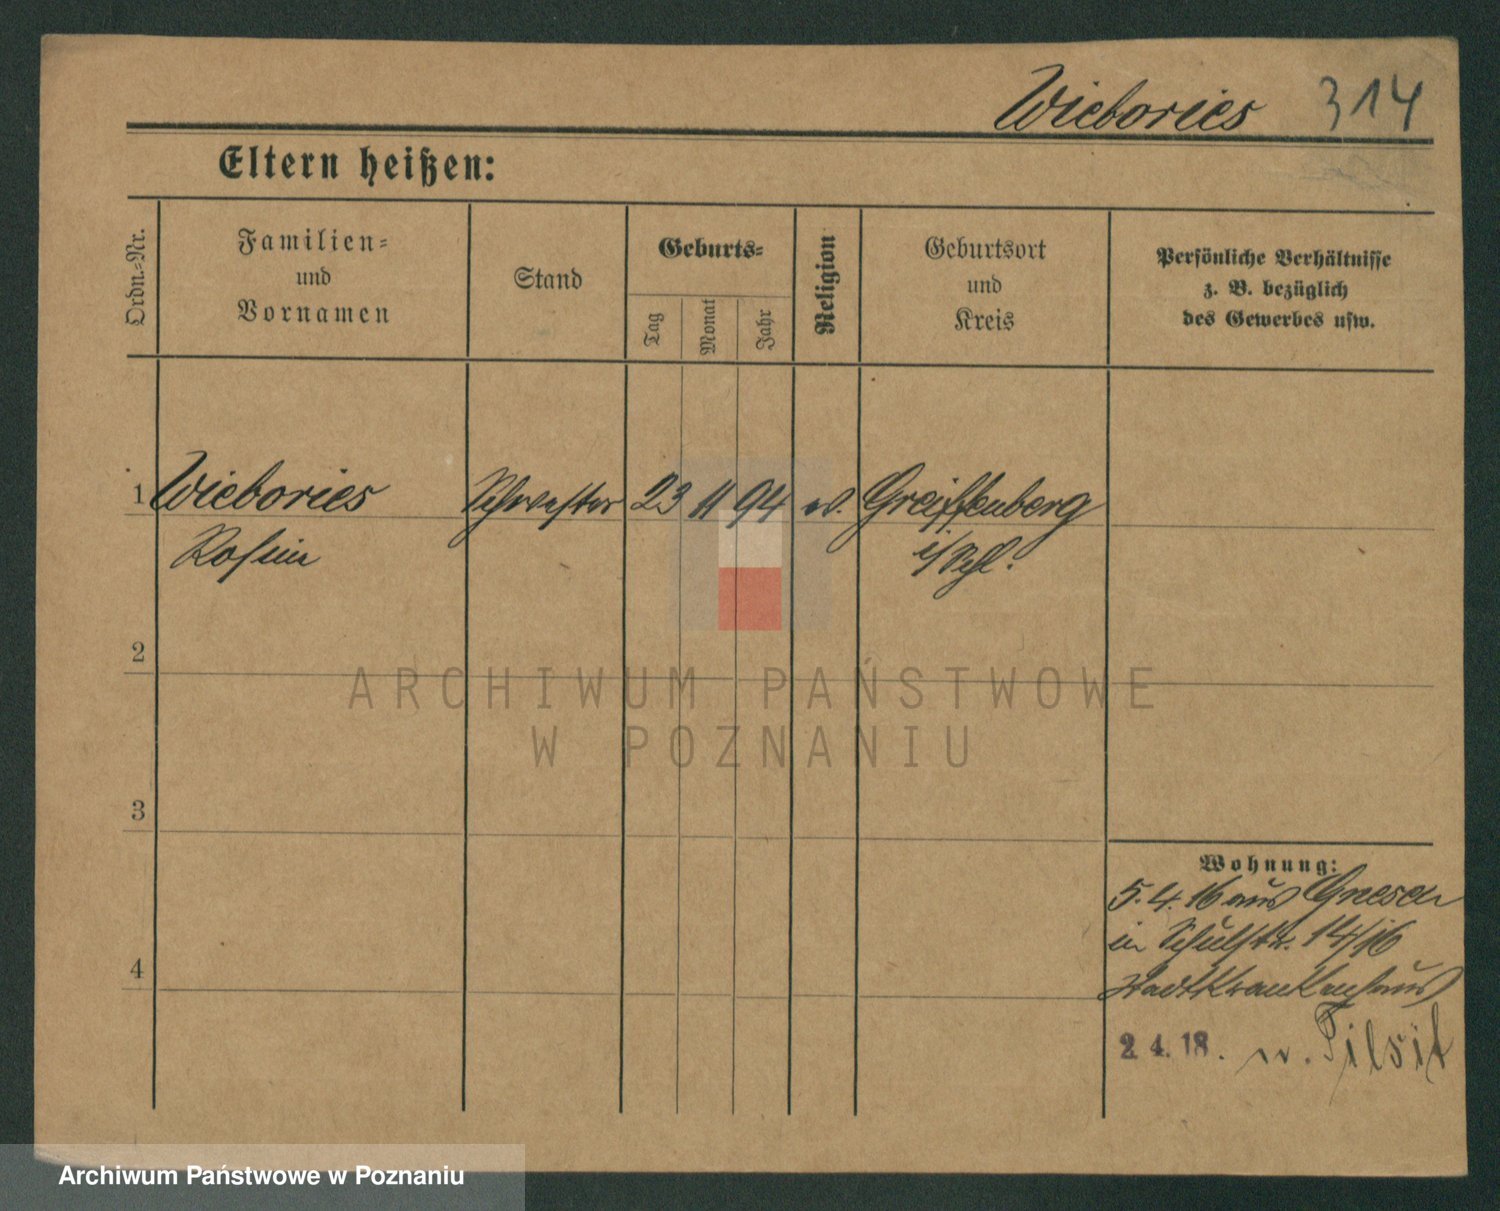 Wiebories 314
Eltern heißen:
Ordn.-Nr.
Familien-
und
Vornamen
Stand
Geburts-
Tag
Monat
Jahr
Religion
Geburtsort
und
Kreis
Persönliche Verhältnisse
z. B. bezüglich
des Gewerbes usw.
1 Wiebories Schwester 23 11 94 ev. Greiffenberg
Rosine i/Schl.
2
3
4
Wohnung:
5.4.16 aus Gnesen
in Schulstr. 14/16
Stadtkrankenhaus
2. 4. 18. n. Tilsit
ARCHIWUM PAŃSTWOWE
W POZNANIU
Archiwum Państwowe w Poznaniu